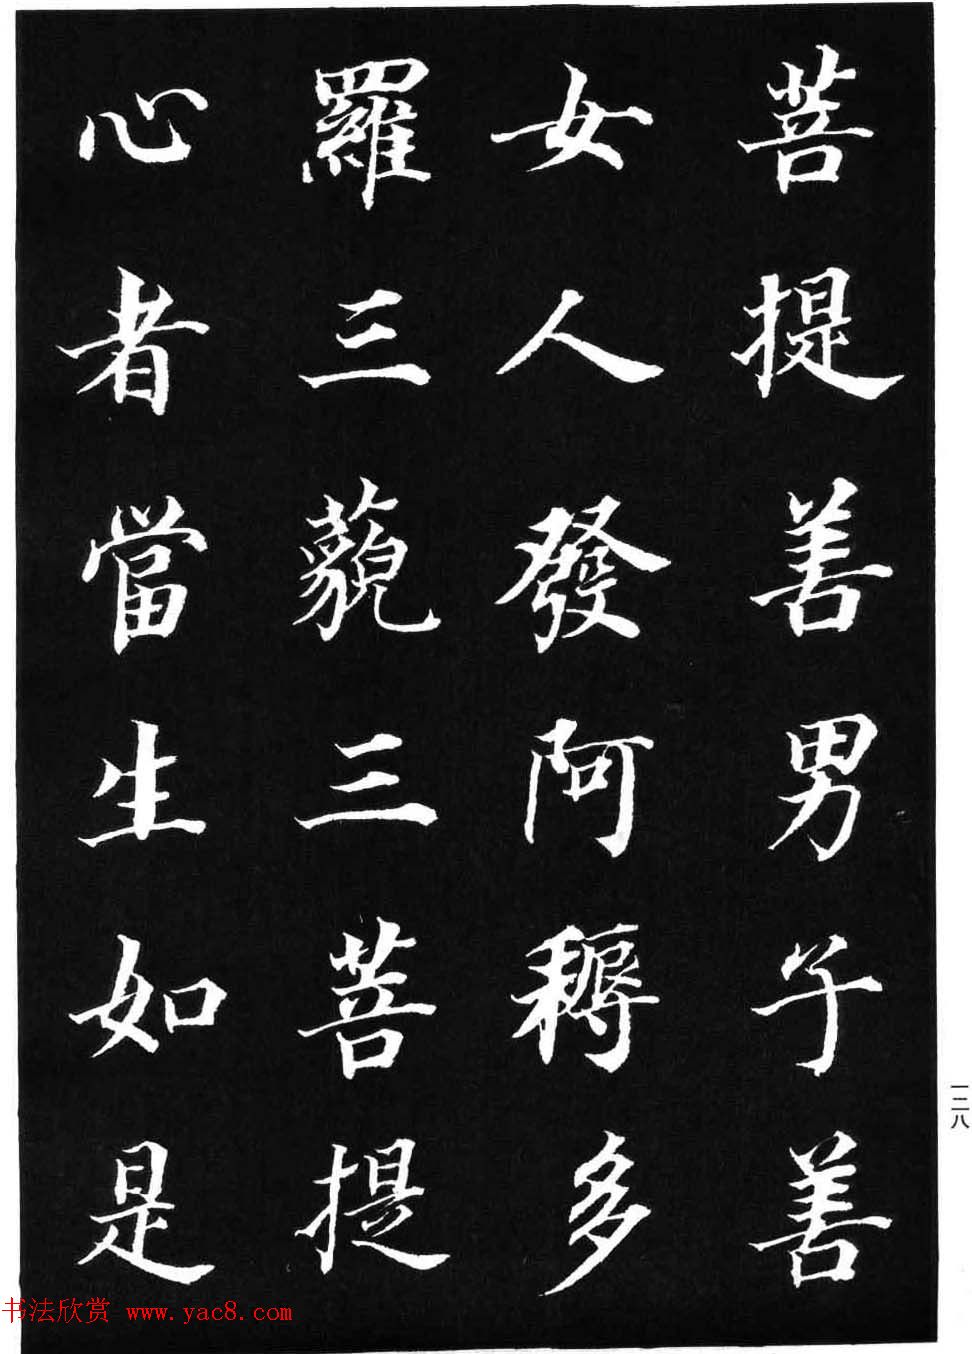 菩提善男子善
女人發阿耨多
羅三藐三菩提
心者當生如是
一二八
书法欣赏 www.yac8.com